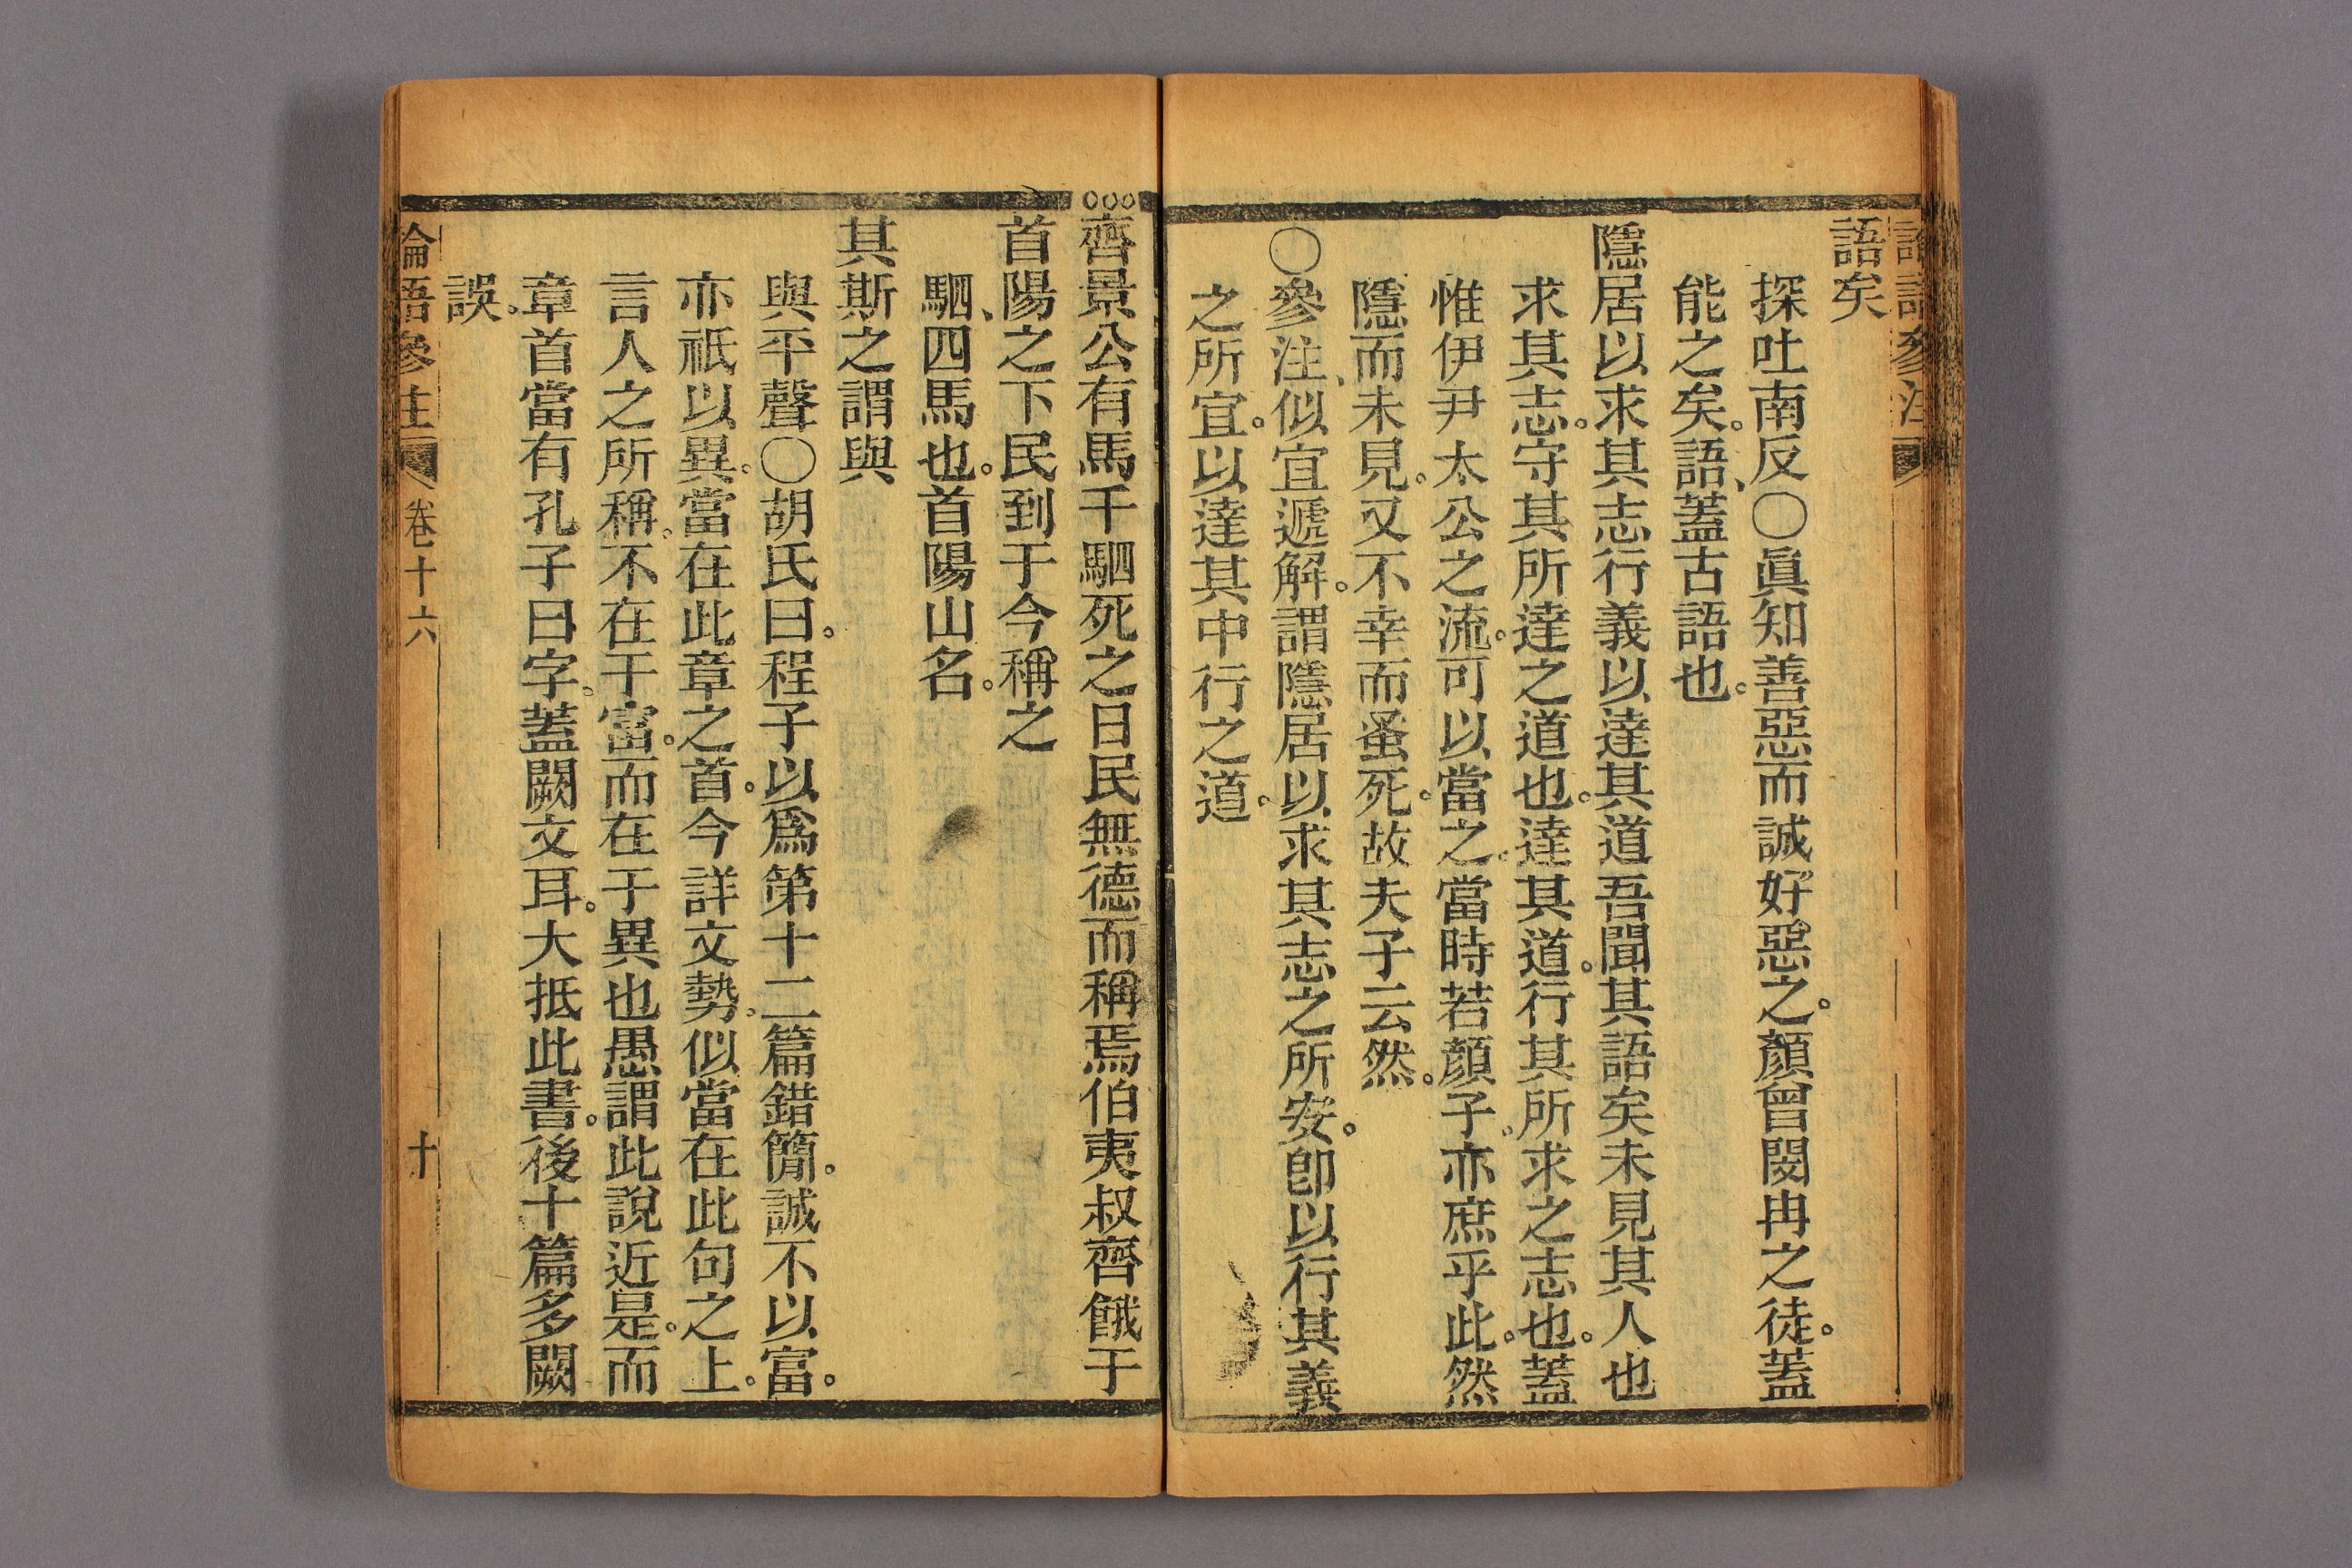 語矣
探吐南反〇眞知善惡而誠好惡之。顏曾閔冉之徒。蓋
能之矣。語、蓋古語也。
隱居以求其志行義以達其道吾聞其語矣未見其人也
求其志。守其所達之道也。達其道。行其所求之志也。蓋
惟伊尹太公之流。可以當之。當時若顏子。亦庶乎此。然
隱而未見。又不幸而蚤死。故夫子云然。
〇參注、似宜遞解。謂隱居以求其志之所安。卽以行其義
之所宜。以達其中行之道。
齊景公有馬千駟死之日民無德而稱焉伯夷叔齊餓于
首陽之下民到于今稱之
駟、四馬也。首陽山名。
其斯之謂與
與平聲〇胡氏曰。程子以爲第十二篇錯簡。誠不以富。
亦祇以異。當在此章之首。今詳文勢。似當在此句之上。
言人之所稱。不在于富。而在于異也愚謂此說近是。而
章首當有孔子曰字。蓋闕文耳。大抵此書。後十篇多闕
誤。
論語參注 卷十六 十